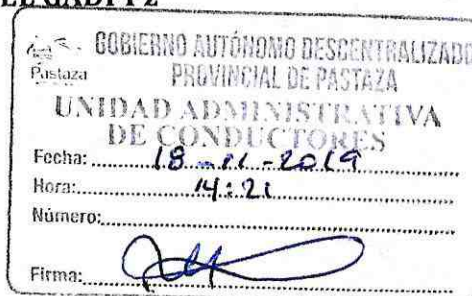 EL GADPPz
GOBIERNO AUTÓNOMO DESCENTRALIZADO
Pastaza
PROVINCIAL DE PASTAZA
UNIDAD ADMINISTRATIVA
DE CONDUCTORES
Fecha: 18-11-2019
Hora: 14:21
Número:
Firma: